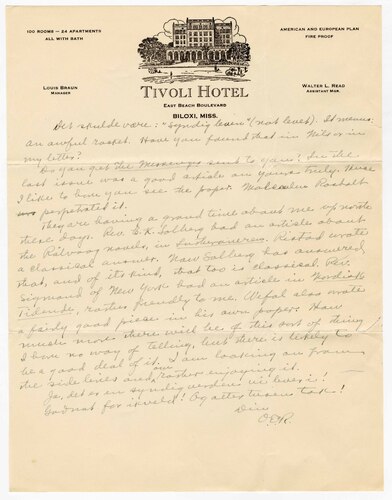 100 ROOMS — 24 APARTMENTS
ALL WITH BATH
AMERICAN AND EUROPEAN PLAN
FIRE PROOF
LOUIS BRAUN
MANAGER
WALTER L. READ
ASSISTANT MGR.
TIVOLI HOTEL
EAST BEACH BOULEVARD
BILOXI, MISS.
Det skulde være: "Syndig leven" (not level). It means
an awful racket. Have you found that in Nilsen in
my letter?
Do you get the Messenger sent to you? In the
last issue was a good article on yours truly. These
I like to have you see the paper. Malcolm Rosholt
perpetrated it.
They are having a grand time about me up north
these days. Rev. G. K. Solberg had an article about
the Rølvaag novels, in Lutheraneren. Ristad wrote
a classical answer. Now Solberg has answered
that, and of its kind, that too is classical. Rev.
Sigmond of New York had an article in Nordisk
Tidende, rather friendly to me. Wefal also wrote
a fairly good piece in his own paper. How
much more there will be of this sort of thing
I have no way of telling, but there is likely to
be a good deal of it. I am looking on from
the side lines and am rather enjoying it.
Ja, det er en syndig verden vi lever i!
Godnat for ikveld! Og atter tusen tak!
Din
O.E.R.